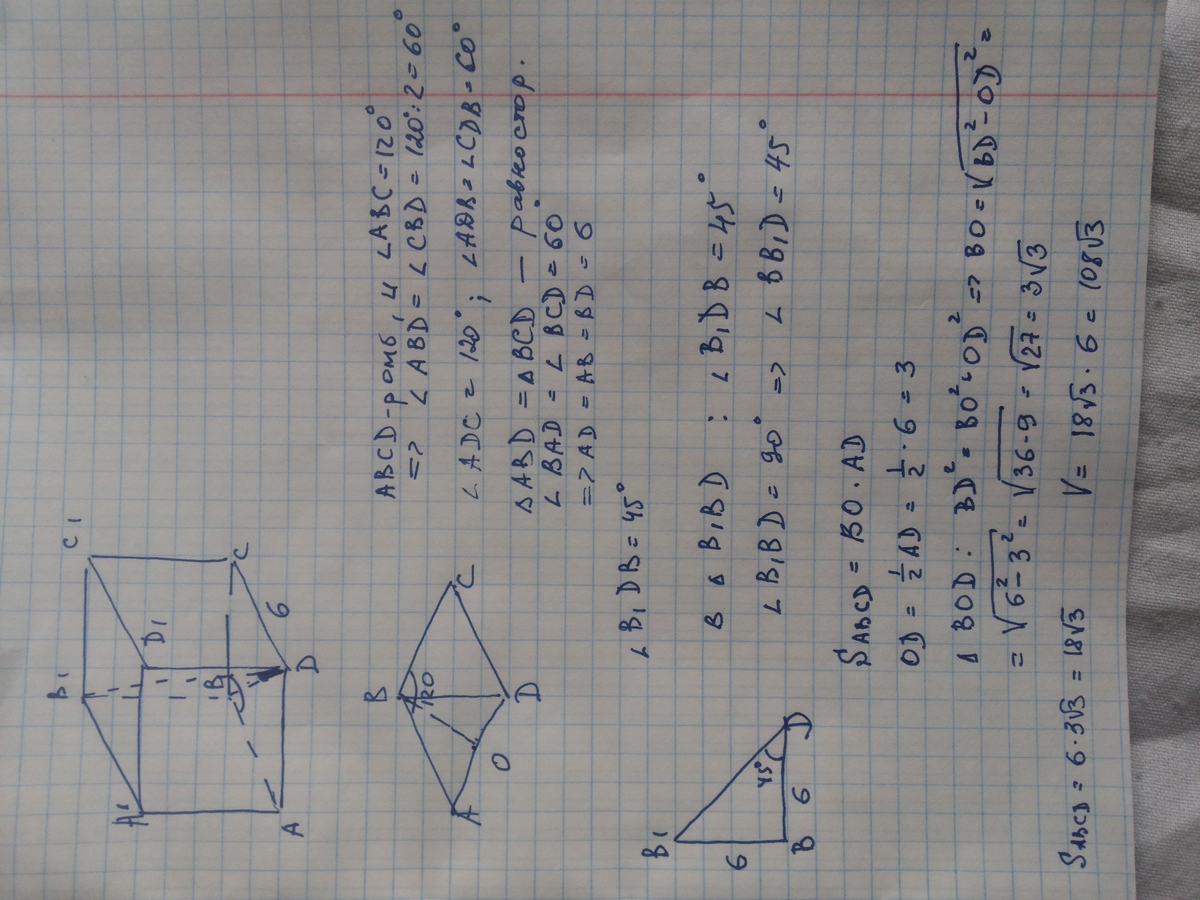 B1
C1
A1
D1
B
C
6
A
D
ABCD-ромб, и ∠ABC = 120°
=> ∠ABD = ∠CBD = 120°:2 = 60°
∠ADC = 120° ; ∠ADB = ∠CDB = 60°
B
120
C
A
O
D
ΔABD = ΔBCD — равностор.
∠BAD = ∠BCD = 60°
=> AD = AB = BD = 6
∠B1DB = 45°
B1
6
45°
B
6
D
В ΔB1BD : ∠B1DB = 45°
∠B1BD = 90° => ∠BB1D = 45°
SABCD = BO · AD
OD = 1/2 AD = 1/2 · 6 = 3
Δ BOD : BD² = BO² + OD² => BO = √(BD² - OD²) =
= √(6² - 3²) = √(36 - 9) = √27 = 3√3
SABCD = 6 · 3√3 = 18√3
V = 18√3 · 6 = 108√3